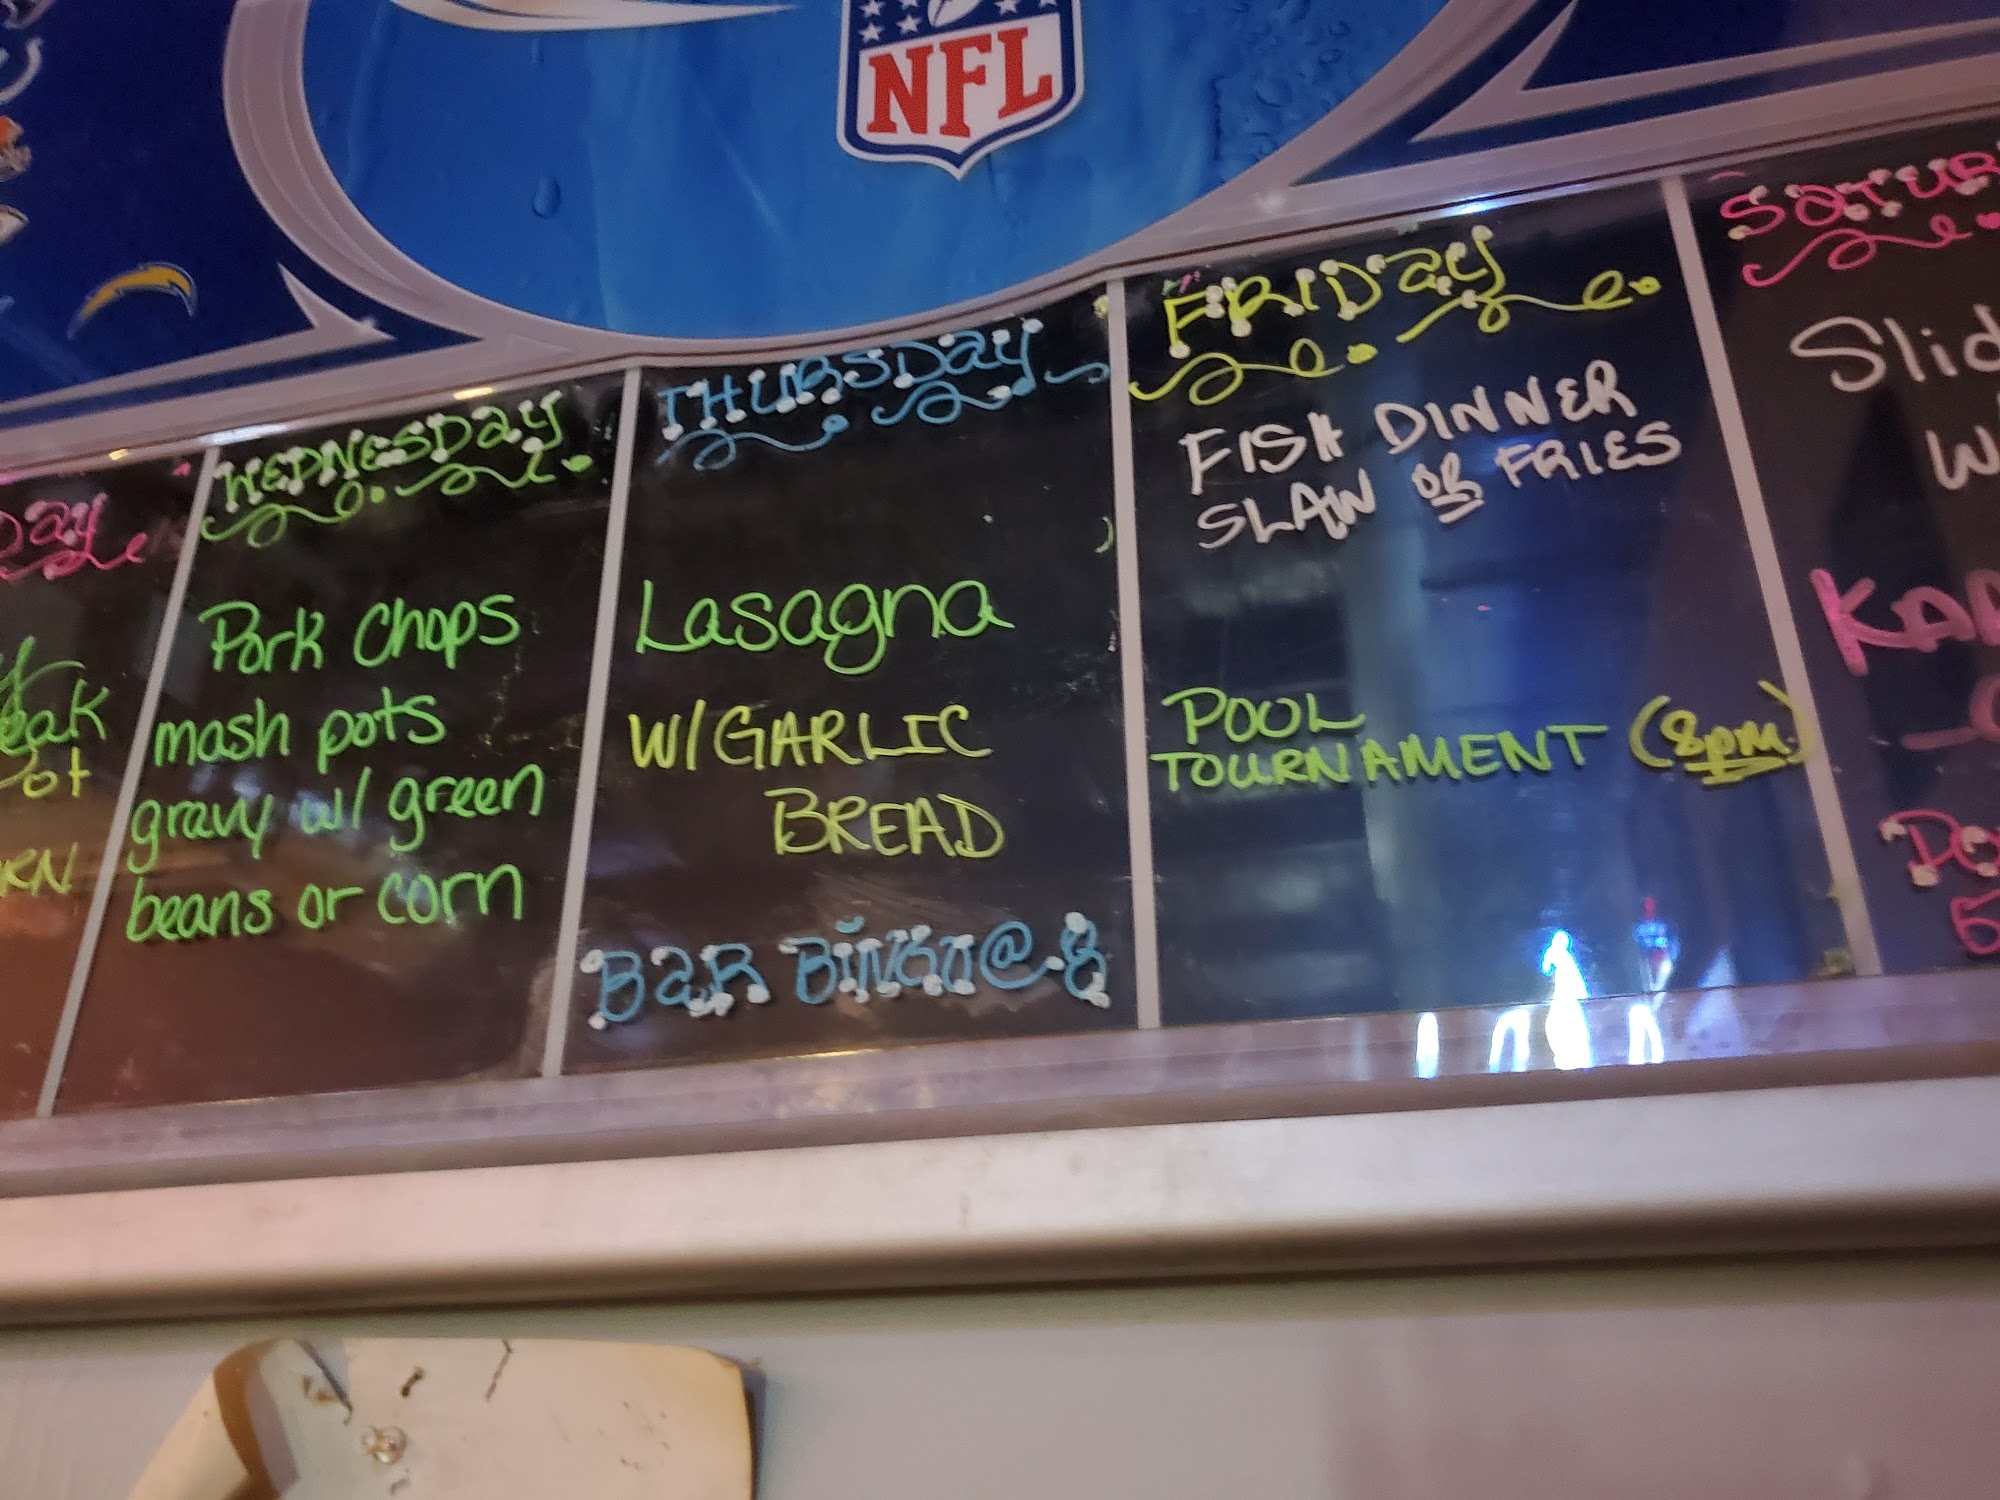 NFL
DAY
WEDNESDAY
Pork Chops
mash pots
gravy w/ green
beans or corn
THURSDAY
Lasagna
W/GARLIC
BREAD
BAR BINGO @ 8
FRIDAY
FISH DINNER
SLAW OR FRIES
POOL
TOURNAMENT (8pm.)
SATUR
Slid
W/
KAR